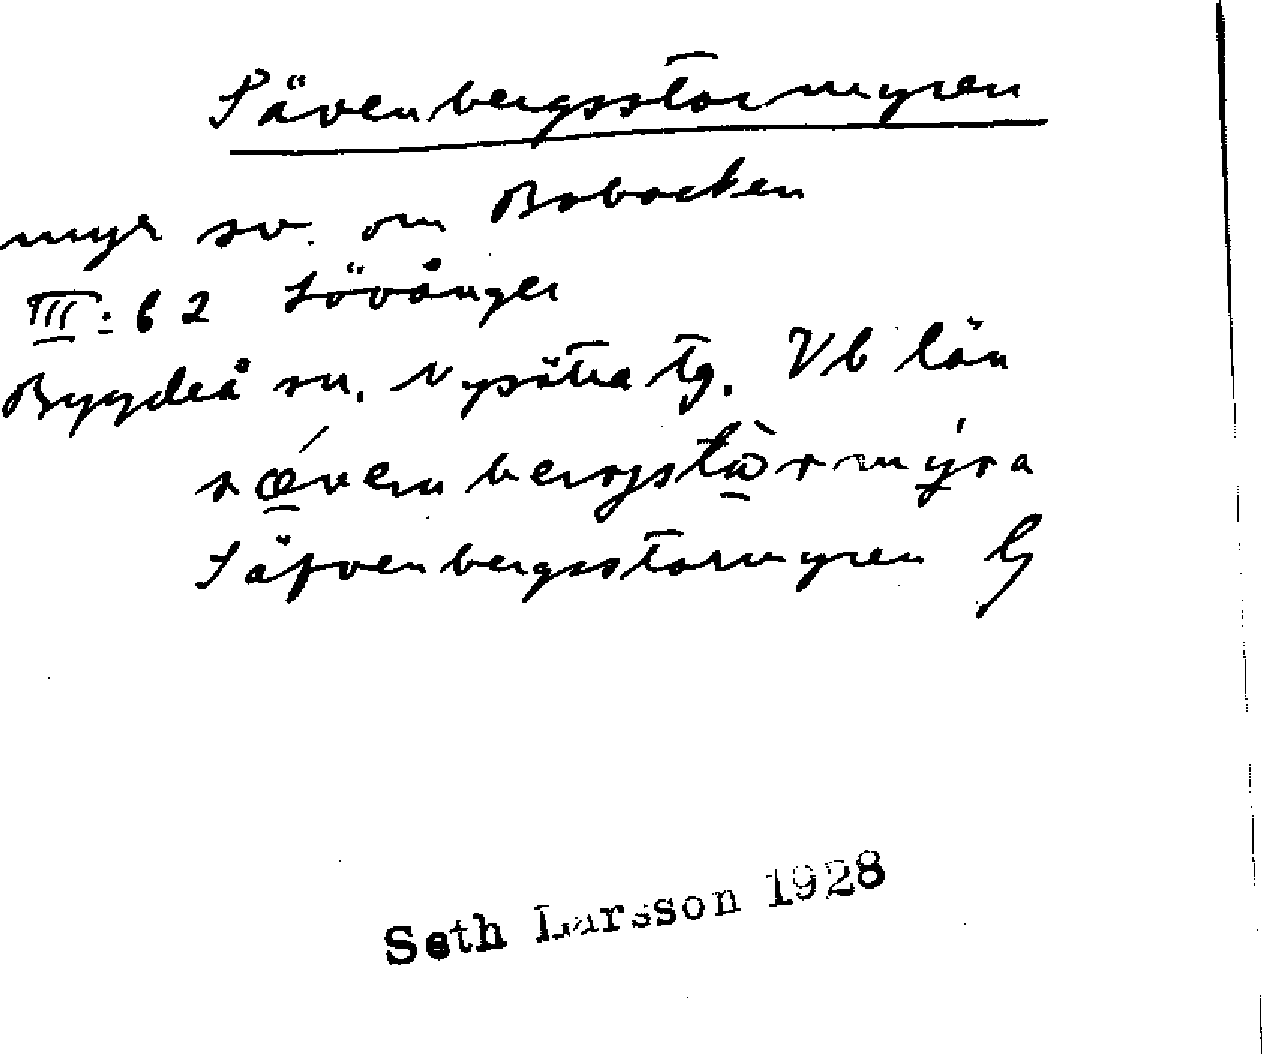 Sävenbergsstormyren
myr sv. om Bobacken
III: 62 Lövånger
Bygdeå sn. Nysätra tg. Vb län
sǽvenbergstòrmýra
Säfvenbergsstormyren G
Seth Larsson 1928